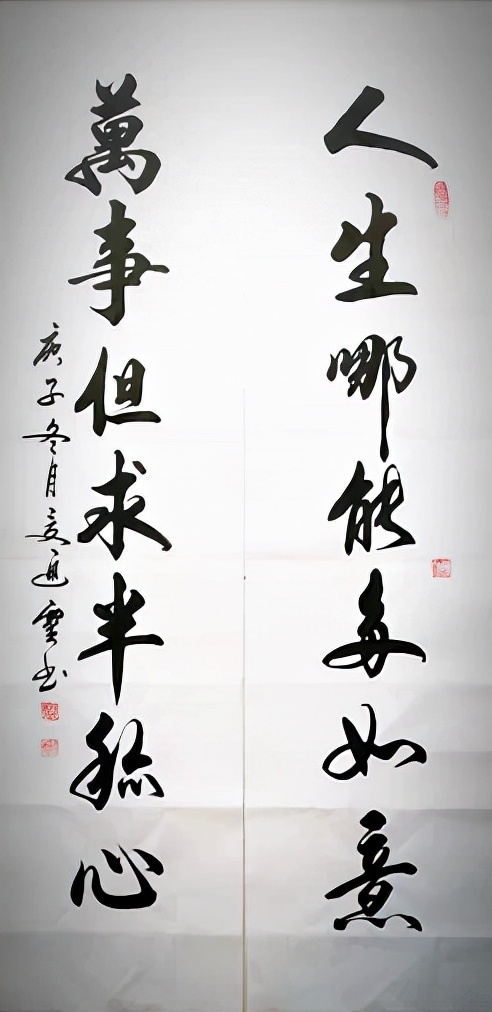 人生哪能多如意
萬事但求半称心
庚子冬月
书